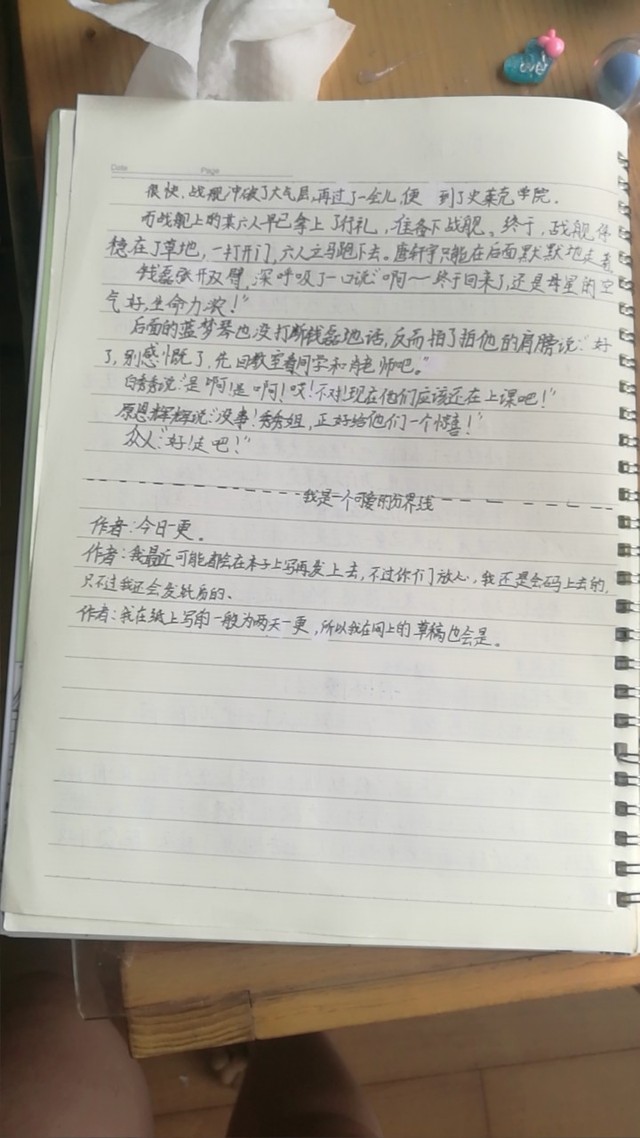 Date Page
很快,战舰冲破了大气层,再过了一会儿,便 到了史莱克学院。
而战舰上的某六人早已拿上了行礼,准备下战舰。终于,战舰停
稳在了草地,一打开门,六人立马跑下去。唐轩宇只能在后面默默地走着
钱磊张开双臂,深呼吸了一口说:"啊~终于回来了,还是母星的空
气好,生命力浓!"
后面的蓝梦琴也没打断钱磊地话,反而拍了拍他的肩膀说:"好
了,别感慨了,先回教室看同学和肖老师吧。"
白秀秀说:"是啊!是啊!哎!不对!现在他们应该还在上课吧!"
原恩辉辉说:"没事!秀秀姐,正好给他们一个惊喜!"
众人:"好!走吧!"
我是一个可爱的分界线
作者:今日一更。
作者:我最近可能都会在本子上写再发上去,不过你们放心,我还是会码上去的,
只不过我还会发纸质的、
作者:我在纸上写的一般为两天一更,所以我在网上的草稿也会是。